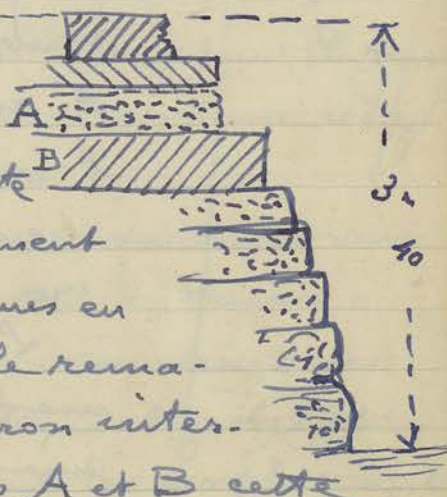 A
B
3m
40
te
ment
ues en
le rema-
ron inter-
s A et B cette